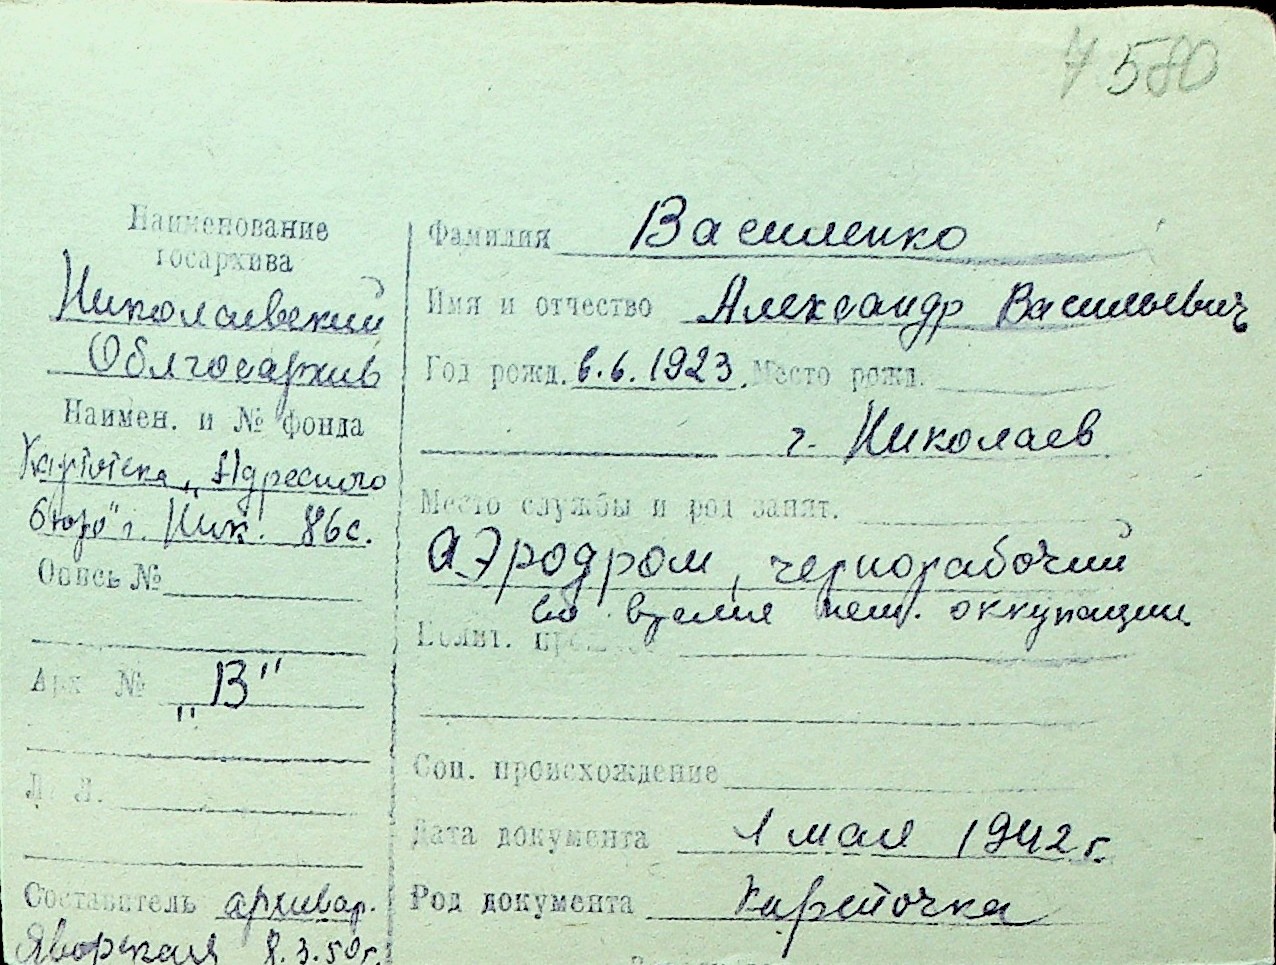 7580
Наименование
госархива
Николаевский
Облгосархив
Наимен. и № фонда
Картотека „Адресного
бюро" г. Ник. 86с.
Опись №
Арх №
„В"
Л. Л.
Составитель архивар.
Яворская 8.3.50г.
Фамилия Василенко
Имя и отчество Александр Васильевич
Год рожд. 6.6.1923. Место рожд.
г. Николаев
Место службы и род занят.
аэродром, чернорабочий
во время нем. оккупации
Полит.
Соц. происхождение
Дата документа 1 мая 1942 г.
Род документа Карточка